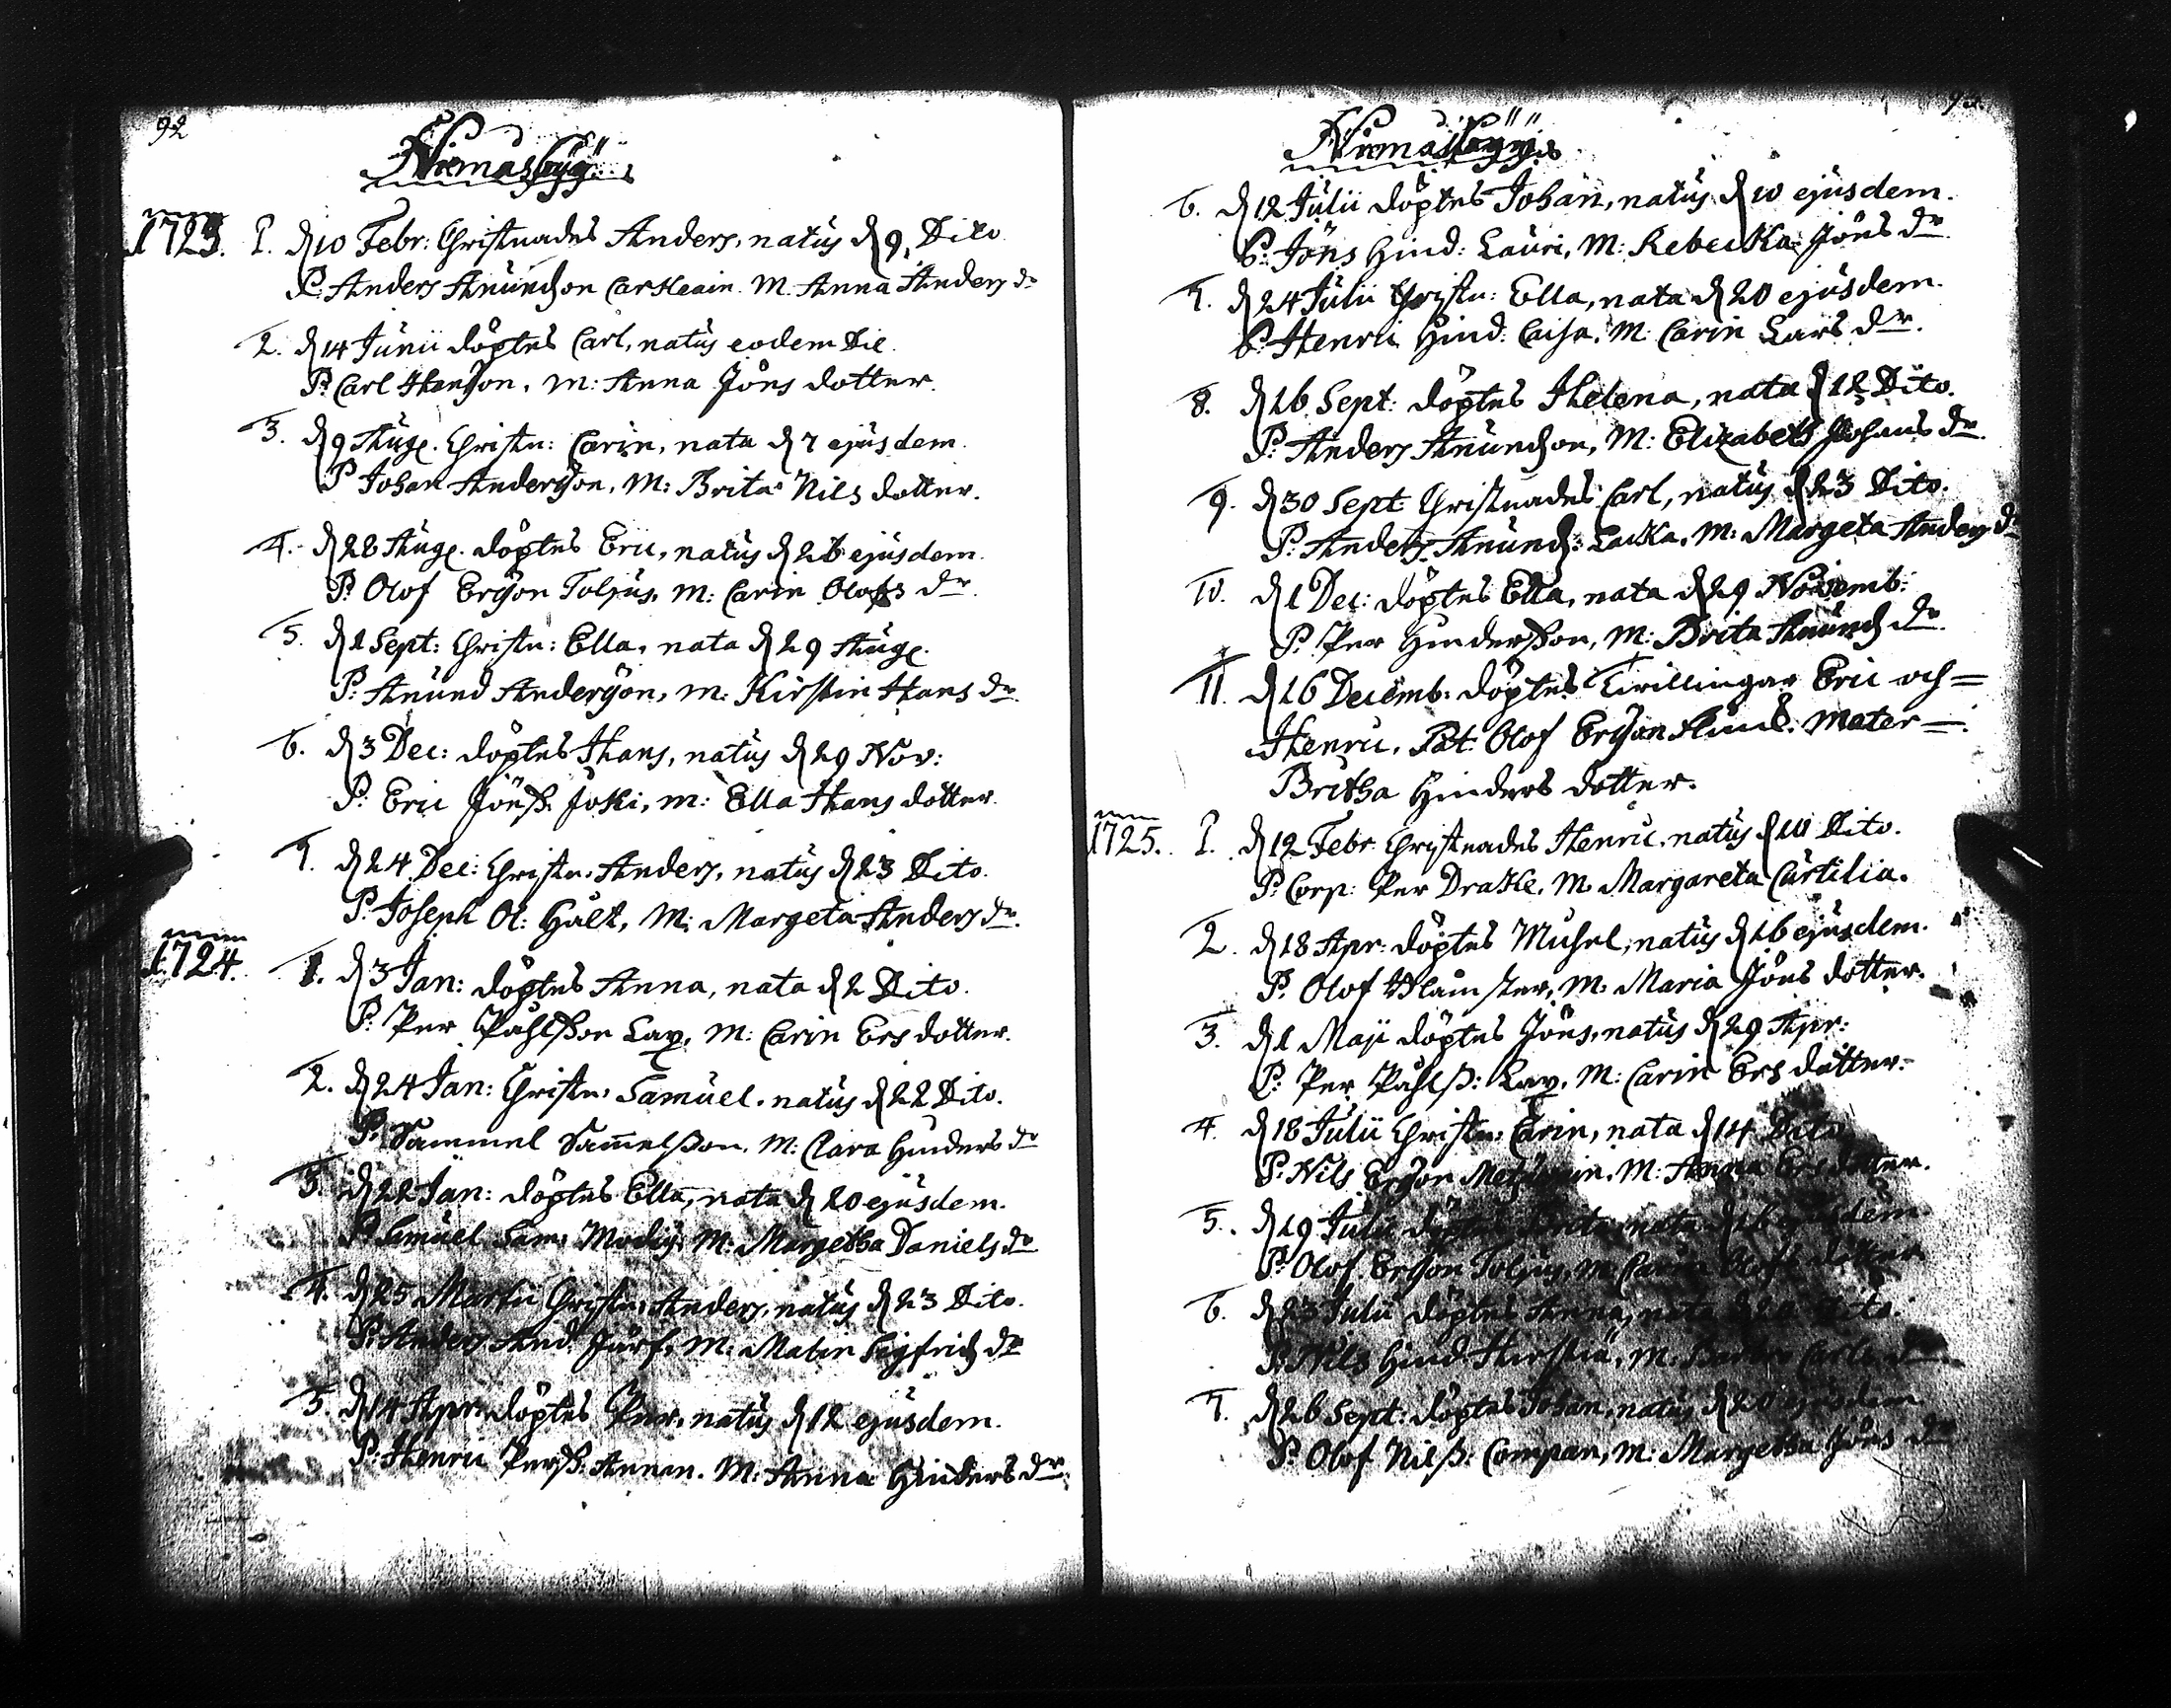 92
Niemisbyÿ
1723. 1. d 10 Febr: Christnades Anders, natus d 9, Dito
P: Anders Anundson Carkeain. M. Anna Anders dr
2. d 14 Junii döptes Carl, natus eodem Die.
P: Carl Hanson, M: Anna Jöns dotter.
3. d 9 Aug. Christn: Carin, nata d 7 ejusdem.
P Johan Anderson, M: Brita Nils dotter.
4. d 28 Aug. döptes Eric, natus d 26 ejusdem.
P: Olof Erson Toljus, M: Carin Olofs dr.
5. d 1 Sept: Christn: Ella, nata d 29 Aug.
P: Anund Anderson, M: Kirstin Hans dr.
6. d 3 Dec: döptes Hans, natus d 29 Nov:
P: Eric Jönss. Joki, M: Ella Hans dotter.
7. d 24 Dec: Christn. Anders, natus d 23 Dito.
P: Joseph Ol: Hult, M: Margeta Anders dr.
1724. 1. d 3 Jan: döptes Anna, nata d 2 Dito.
P: Per Påhlsson Lap, M: Carin Ers dotter.
2. d 24 Jan: Christn: Samuel. natus d 22 Dito.
P: Sammel Samelsson. M: Clara Hinders dr
3. d 22 Jan: döptes Ella, nata d 20 ejusdem.
P Samuel Sam: M: Margetha Daniels dr
4. d 25 Martii Christn: Anders, natus d 23 Dito.
P: Anders And. Jurf, M: Malin Sigfrids dr
5. d 14 Apr: döptes Per, natus d 12 ejusdem.
P: Henric Perss: Annan. M: Anna Hinders dr.
93.
Niemisbyÿs
6. d 12 Julii döptes Johan, natus d 10 ejusdem.
P: Jöns Hind: Lauri, M: Rebecka Jöns dr
7. d 24 Julii Christn: Ella, nata d 20 ejusdem.
P: Henric Hind: Caisa. M: Carin Lars dr.
8. d 16 Sept: döptes Helena, nata d 12 Dito.
P: Anders Anundson, M: Elizabeth Johans dr.
9. d 30 Sept Christnades Carl, natus d 23 Dito.
P: Anders Anunds: Lacka, M: Margeta Anders dr
10. d 1 Dec: döptes Ella, nata d 29 Novemb:
P: Per Hindersson, M: Brita Anunds dr.
11. d 16 Decemb: döptes Tvillingar Eric och =
Henric, Pat: Olof Erson Mater =
Britha Hinders dotter.
1725. 1. d 12 Febr Christnades Henric. natus d 10 Dito.
P: Corp: Per Drake, M. Margareta Curtilia.
2. d 18 Apr: döptes Michel, natus d 16 ejusdem.
P. Olof M: Maria Jöns dotter.
3. d 1 Maji döptes Jöns, natus d 29 Apr:
P: Per Påhlss: Lap, M: Carin Ers dotter.
4. d 18 Julii Christn: Carin, nata d 14 Dito
P: Nils Erson M: Anna Ers dotter.
5. d 19 Julii döptes nata d 16 ejusdem
P: Olof Erson Toljus, M: Carin Olofs dotter
6. d 23 Julii döptes Anna, nata d 20 Dito.
P: Nils Hind M: Carls dr.
7. d 26 Sept: döptes Johan, natus d 20 ejusdem
P: Olof Nilss: Compan, M: Margetha Jöns dr